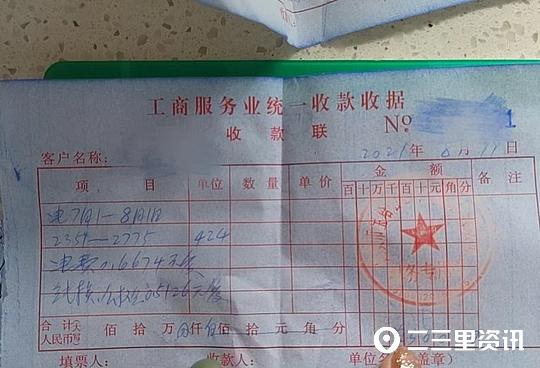 工商服务业统一收款收据
收款联 № 1
客户名称: 2021年 月11日
项目 单位 数量 单价 金额 备注
百十万千百十元角分
电7月1—8月1日
2351—2775 424
电费0.6674元/度
合计 人民币 佰拾万仟佰拾元角分
填票人: 收款人: 单位名称(盖章)
二三里资讯